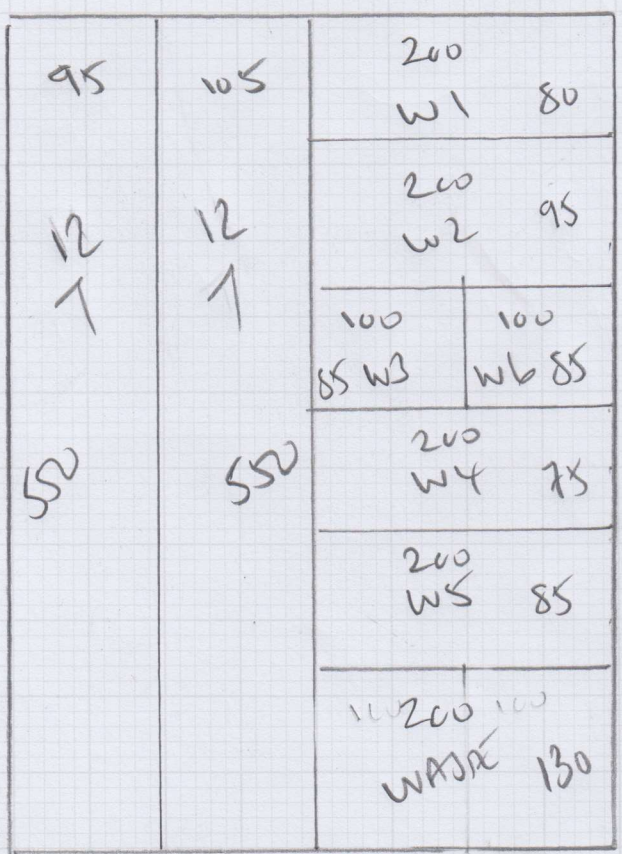 95
12
1
550
105
12
1
550
200
W1 80
200
W2 95
100
85 W3
100
W6 85
200
W4 75
200
W5 85
100 200 100
130